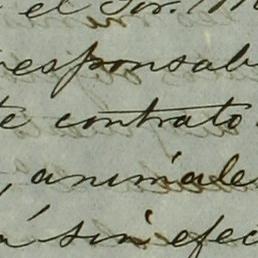 el Sor. M
responsab
te contrato
, animale
á sin efec